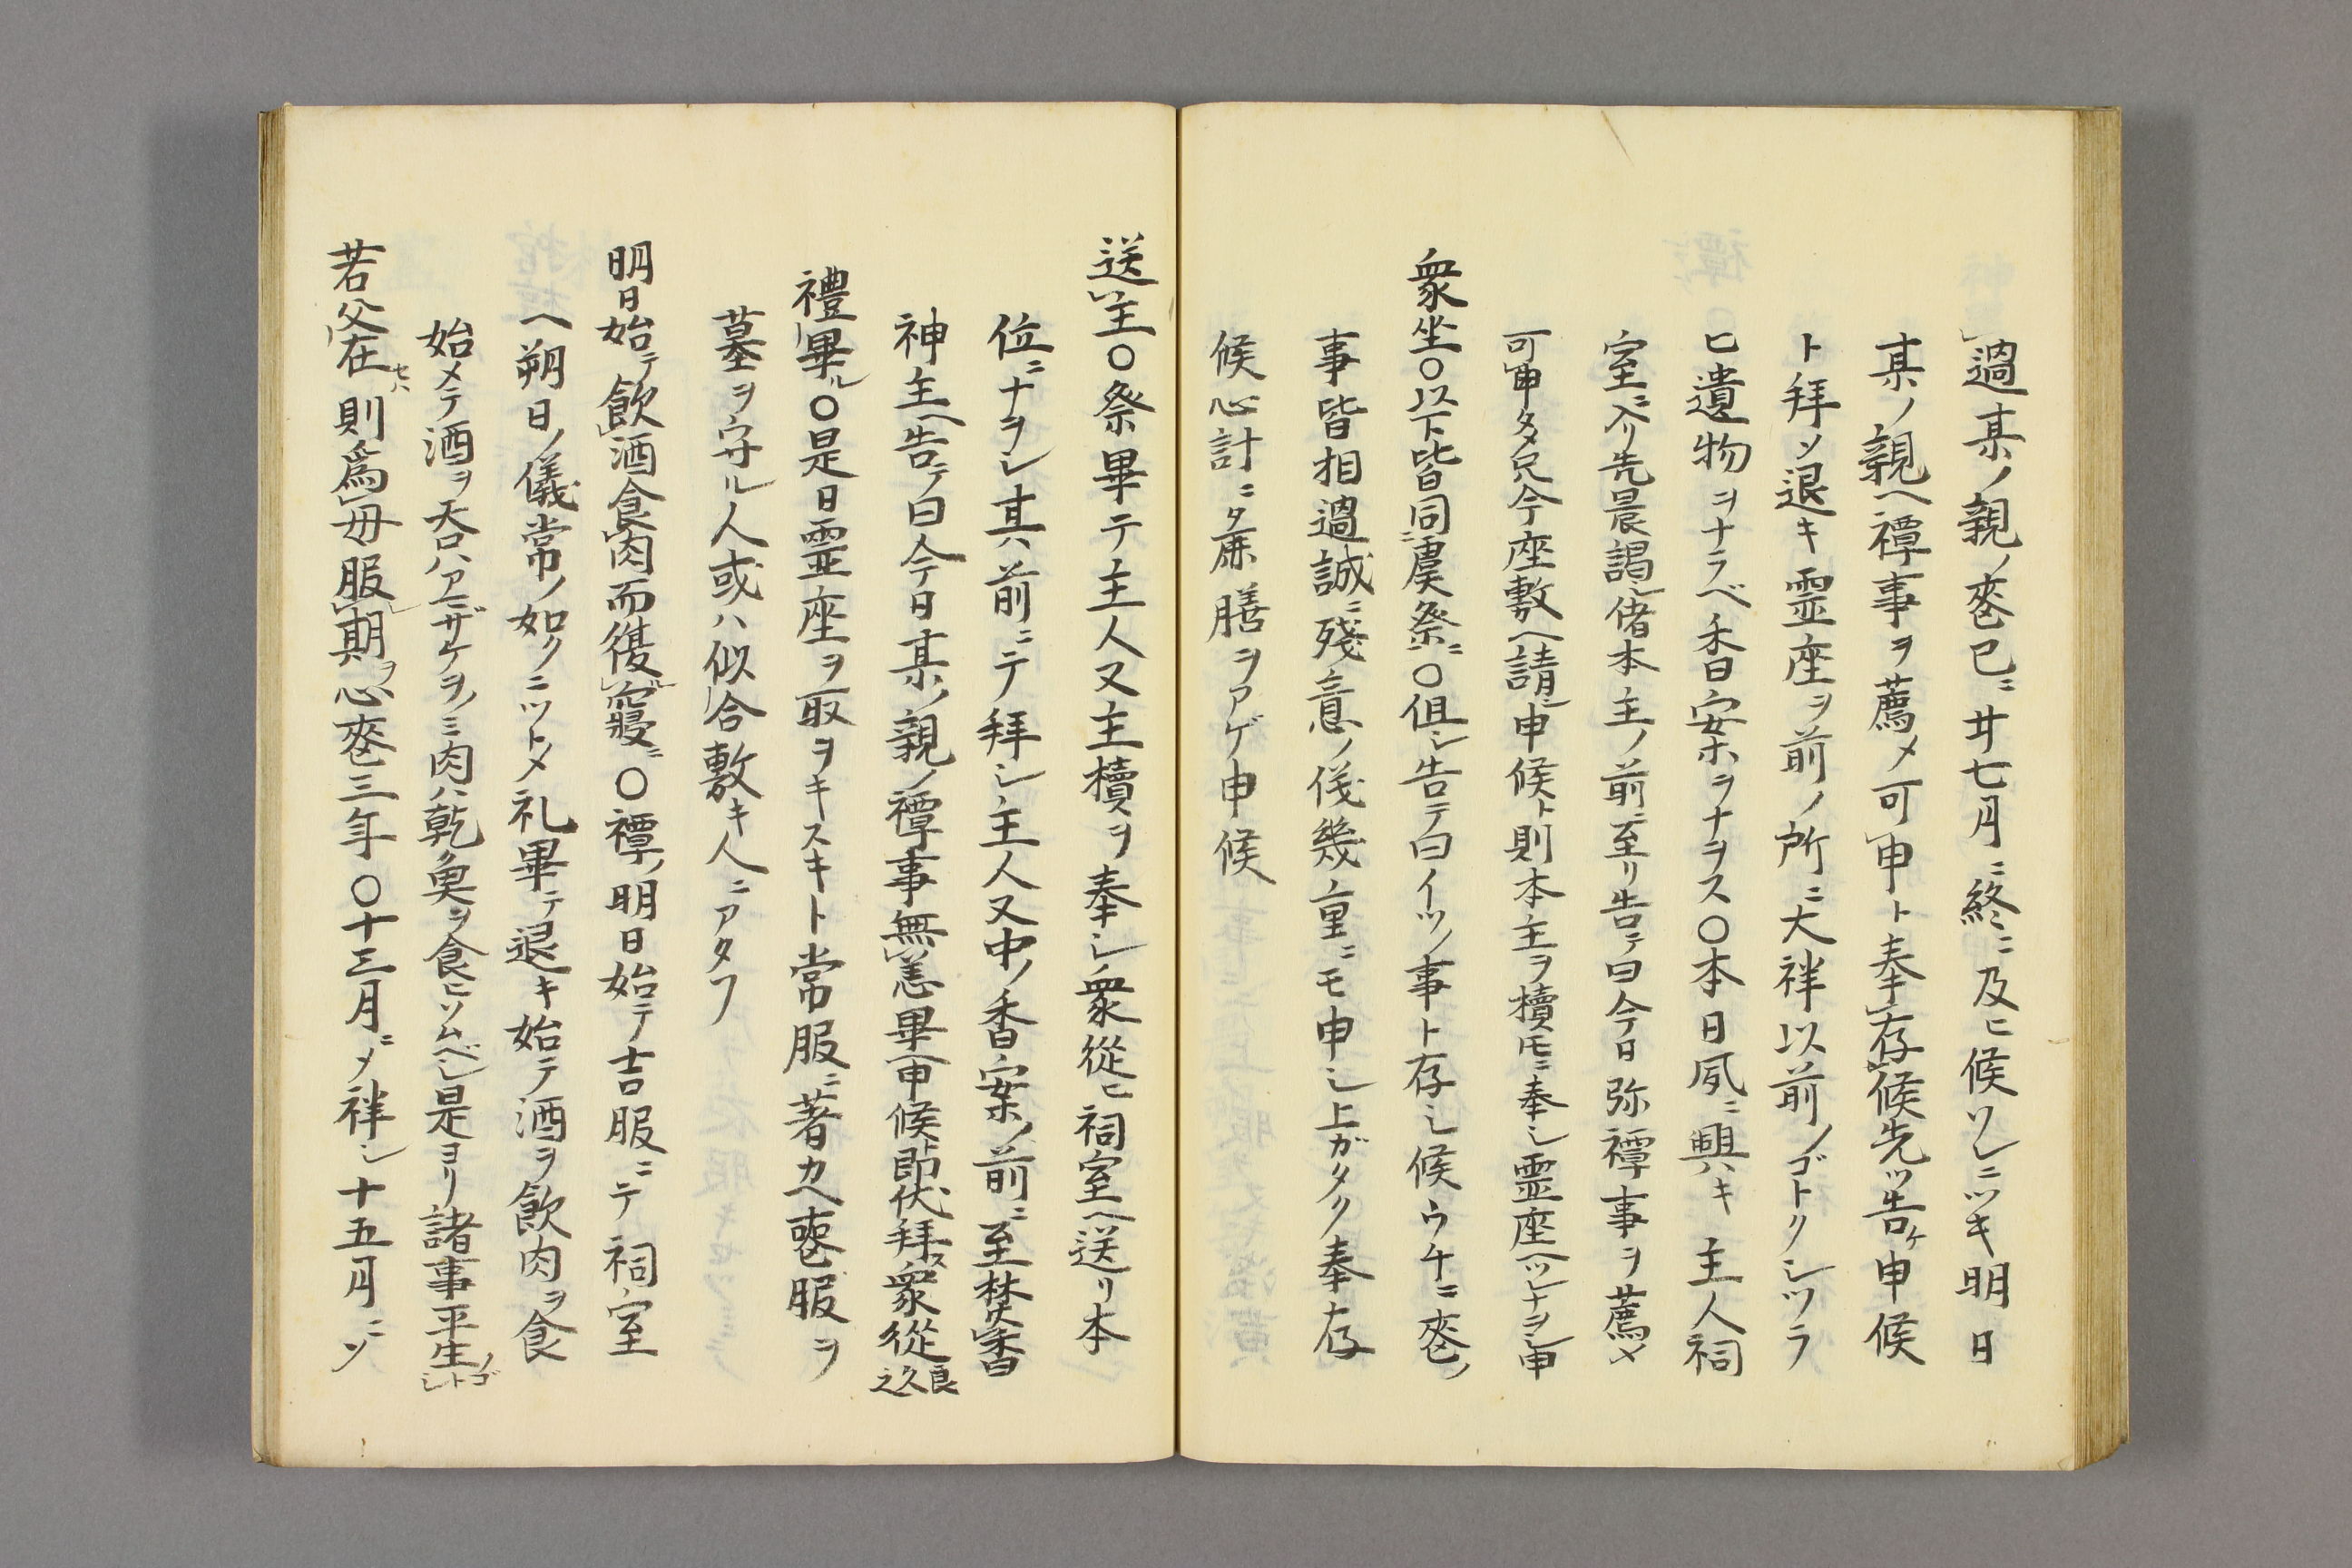 過某ノ親ノ喪已ニ廿七月ニ終ニ及ヒ候ツレニツキ明日
某ノ親ヘ禫事ヲ薦メ可申ト奉存候先ツ告ケ申候
ト拜ソ退キ靈座ヲ前ノ所ニ大祥以前ノゴトクシツラ
ヒ遺物ヲナラベ香案ヲナヲス〇本日夙ニ興キ主人祠
室ニ入リ先晨謁シ偖本主ノ前ニ至リ告テ曰今日弥禫事ヲ薦メ
可申タメ只今座敷ヘ請シ申候ト則本主ヲ櫝トモニ奉シ霊座ヘツレナヲシ申
衆坐〇以下皆同虞祭ニ〇但シ告テ曰イツノ事ト存シ候ウチニ喪ノ
事皆相過誠ニ殘意ノ儀幾重ニモ申シ上ガタク奉存
候心計ニタ庶膳ヲアゲ申候
送主〇祭畢テ主人又主櫝ヲ奉シ衆從ヒ祠室ヘ送リ本
位ニナヲシ其前ニテ拜シ主人又中ノ香案ノ前ニ至焚香
神主ヘ告テ曰今日某ノ親ノ禫事無恙畢申候卽伏拜ス衆從之久良
禮畢ル〇是日霊座ヲ取ヲキスキト常服ニ著カヘ喪服ヲ
墓ヲ守ル人或ハ似合敷キ人ニアタフ
明日始テ飲酒食肉而復寢ニ〇禫ノ明日始テ吉服ニテ祠室
ヘ朔日ノ儀常ノ如クニツトメ礼畢テ退キ始テ酒ヲ飲肉ヲ食
始メテ酒ヲ呑ハアマザケヲノミ肉ハ乾魚ヲ食ヒソムベシ是ヨリ諸事平生ノゴトシ
若父在セハ則爲母服期ヲ心喪三年〇十三月ニメ祥シ十五月ニソ